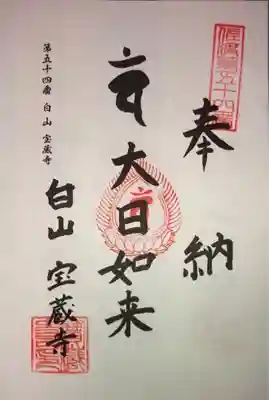 佐渡第五十四番
奉納
大日如来
白山 宝蔵寺
第五十四番 白山 宝蔵寺